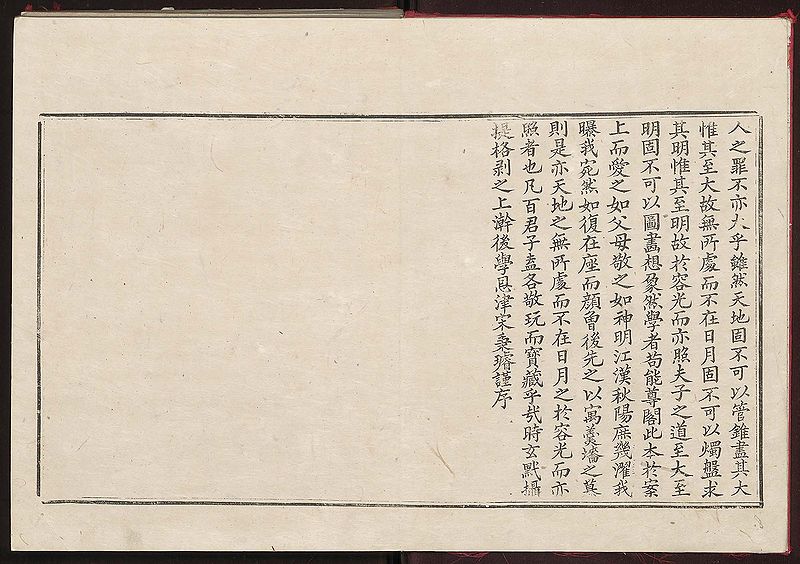 人之罪不亦大乎雖然天地固不可以管錐盡其大
惟其至大故無所處而不在日月固不可以燭盤求
其明惟其至明故於容光而亦照夫子之道至大至
明固不可以圖畵想象然學者苟能尊閣此本於案
上而愛之如父母敬之如神明江漢秋陽庶幾濯我
曝我宛然如復在座而顔曾後先之以寓羹墻之慕
則是亦天地之無所處而不在日月之於容光而亦
照者也凡百君子盍各敬玩而寶藏乎㢤時玄黓攝
提格剥之上澣後學恩津宋秉璿謹序